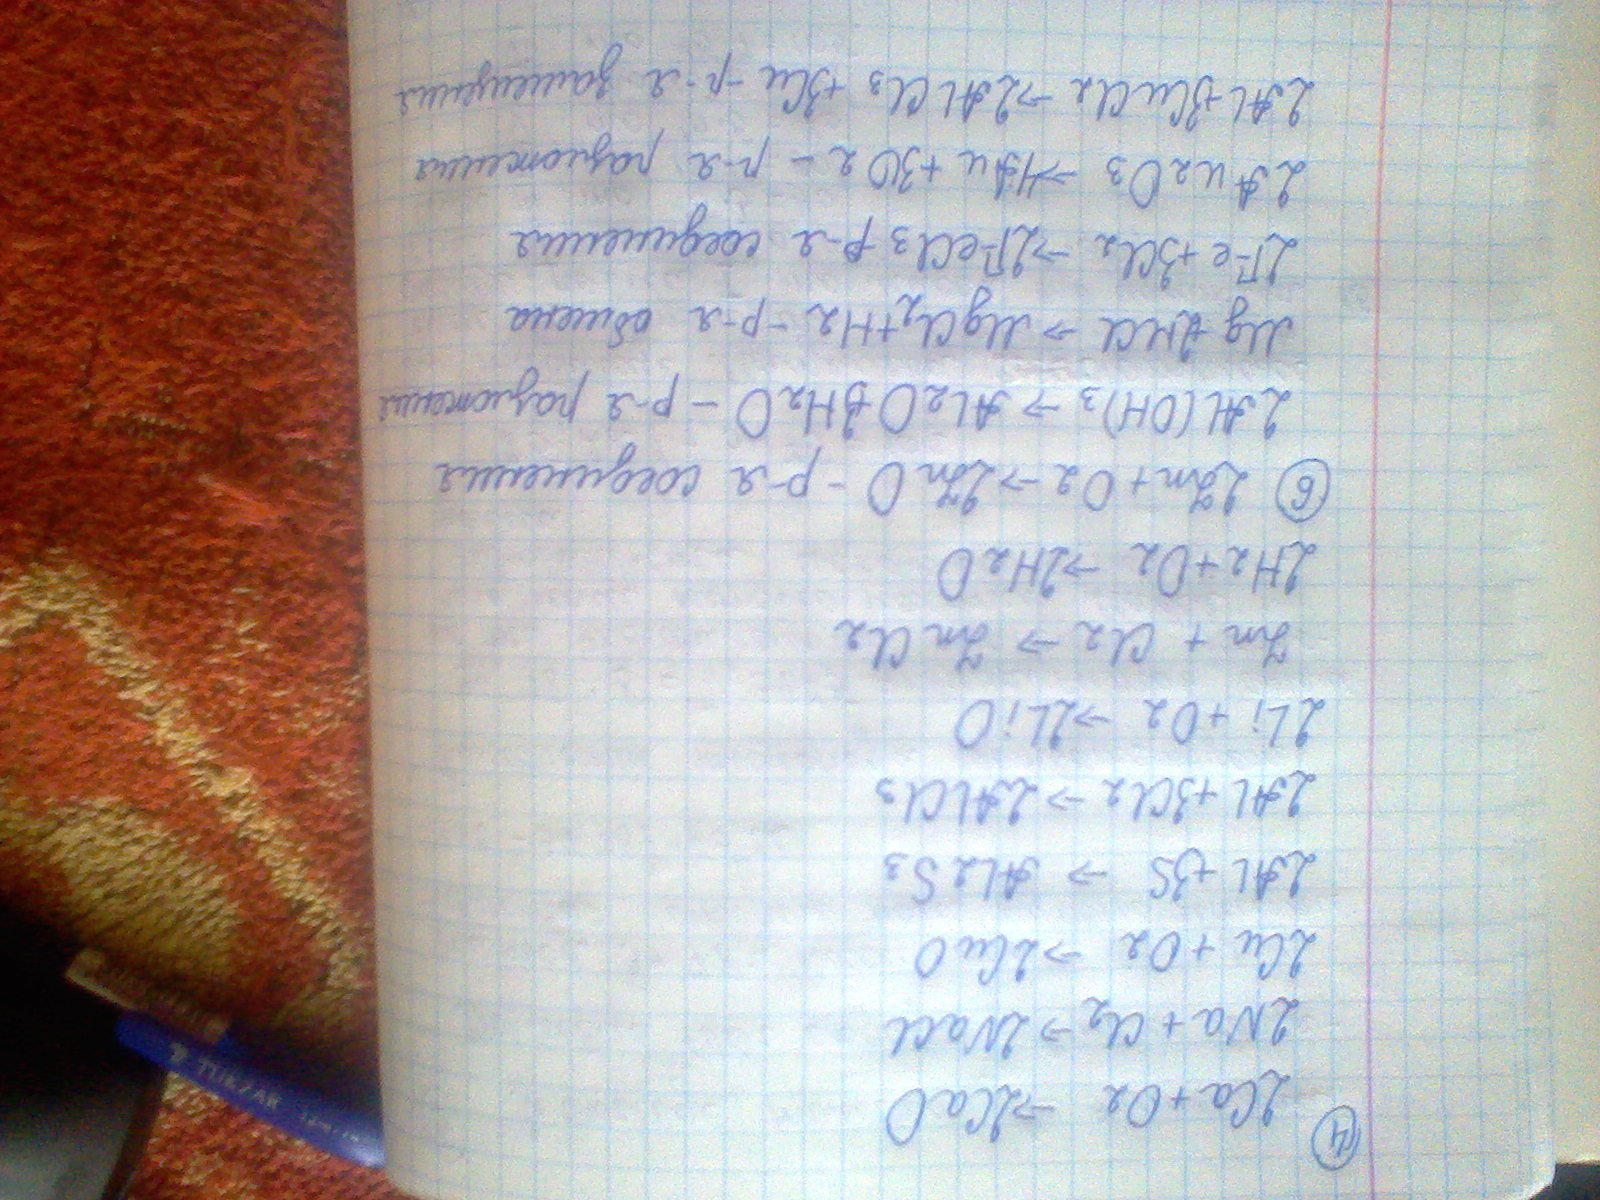 ④ 2Ca+O2 →2CaO
2Na+Cl2→2NaCl
2Cu+O2 →2CuO
2Al+3S → Al2S3
2Al+3Cl2→2AlCl3
2Li+O2 →2LiO
Zn + Cl2 → ZnCl2
2H2+O2 →2H2O
⑥ 2Zn+O2→2ZnO - р-я соединения
2Al(OH)3 → Al2O+3H2O - р-я разложения
Mg+2HCl → MgCl2+H2 - р-я обмена
2Fe+3Cl2 →2FeCl3 р-я соединения
2Au2O3 →4Au+3O2 - р-я разложения
2Al+3CuCl2→2AlCl3+3Cu -р-я замещения